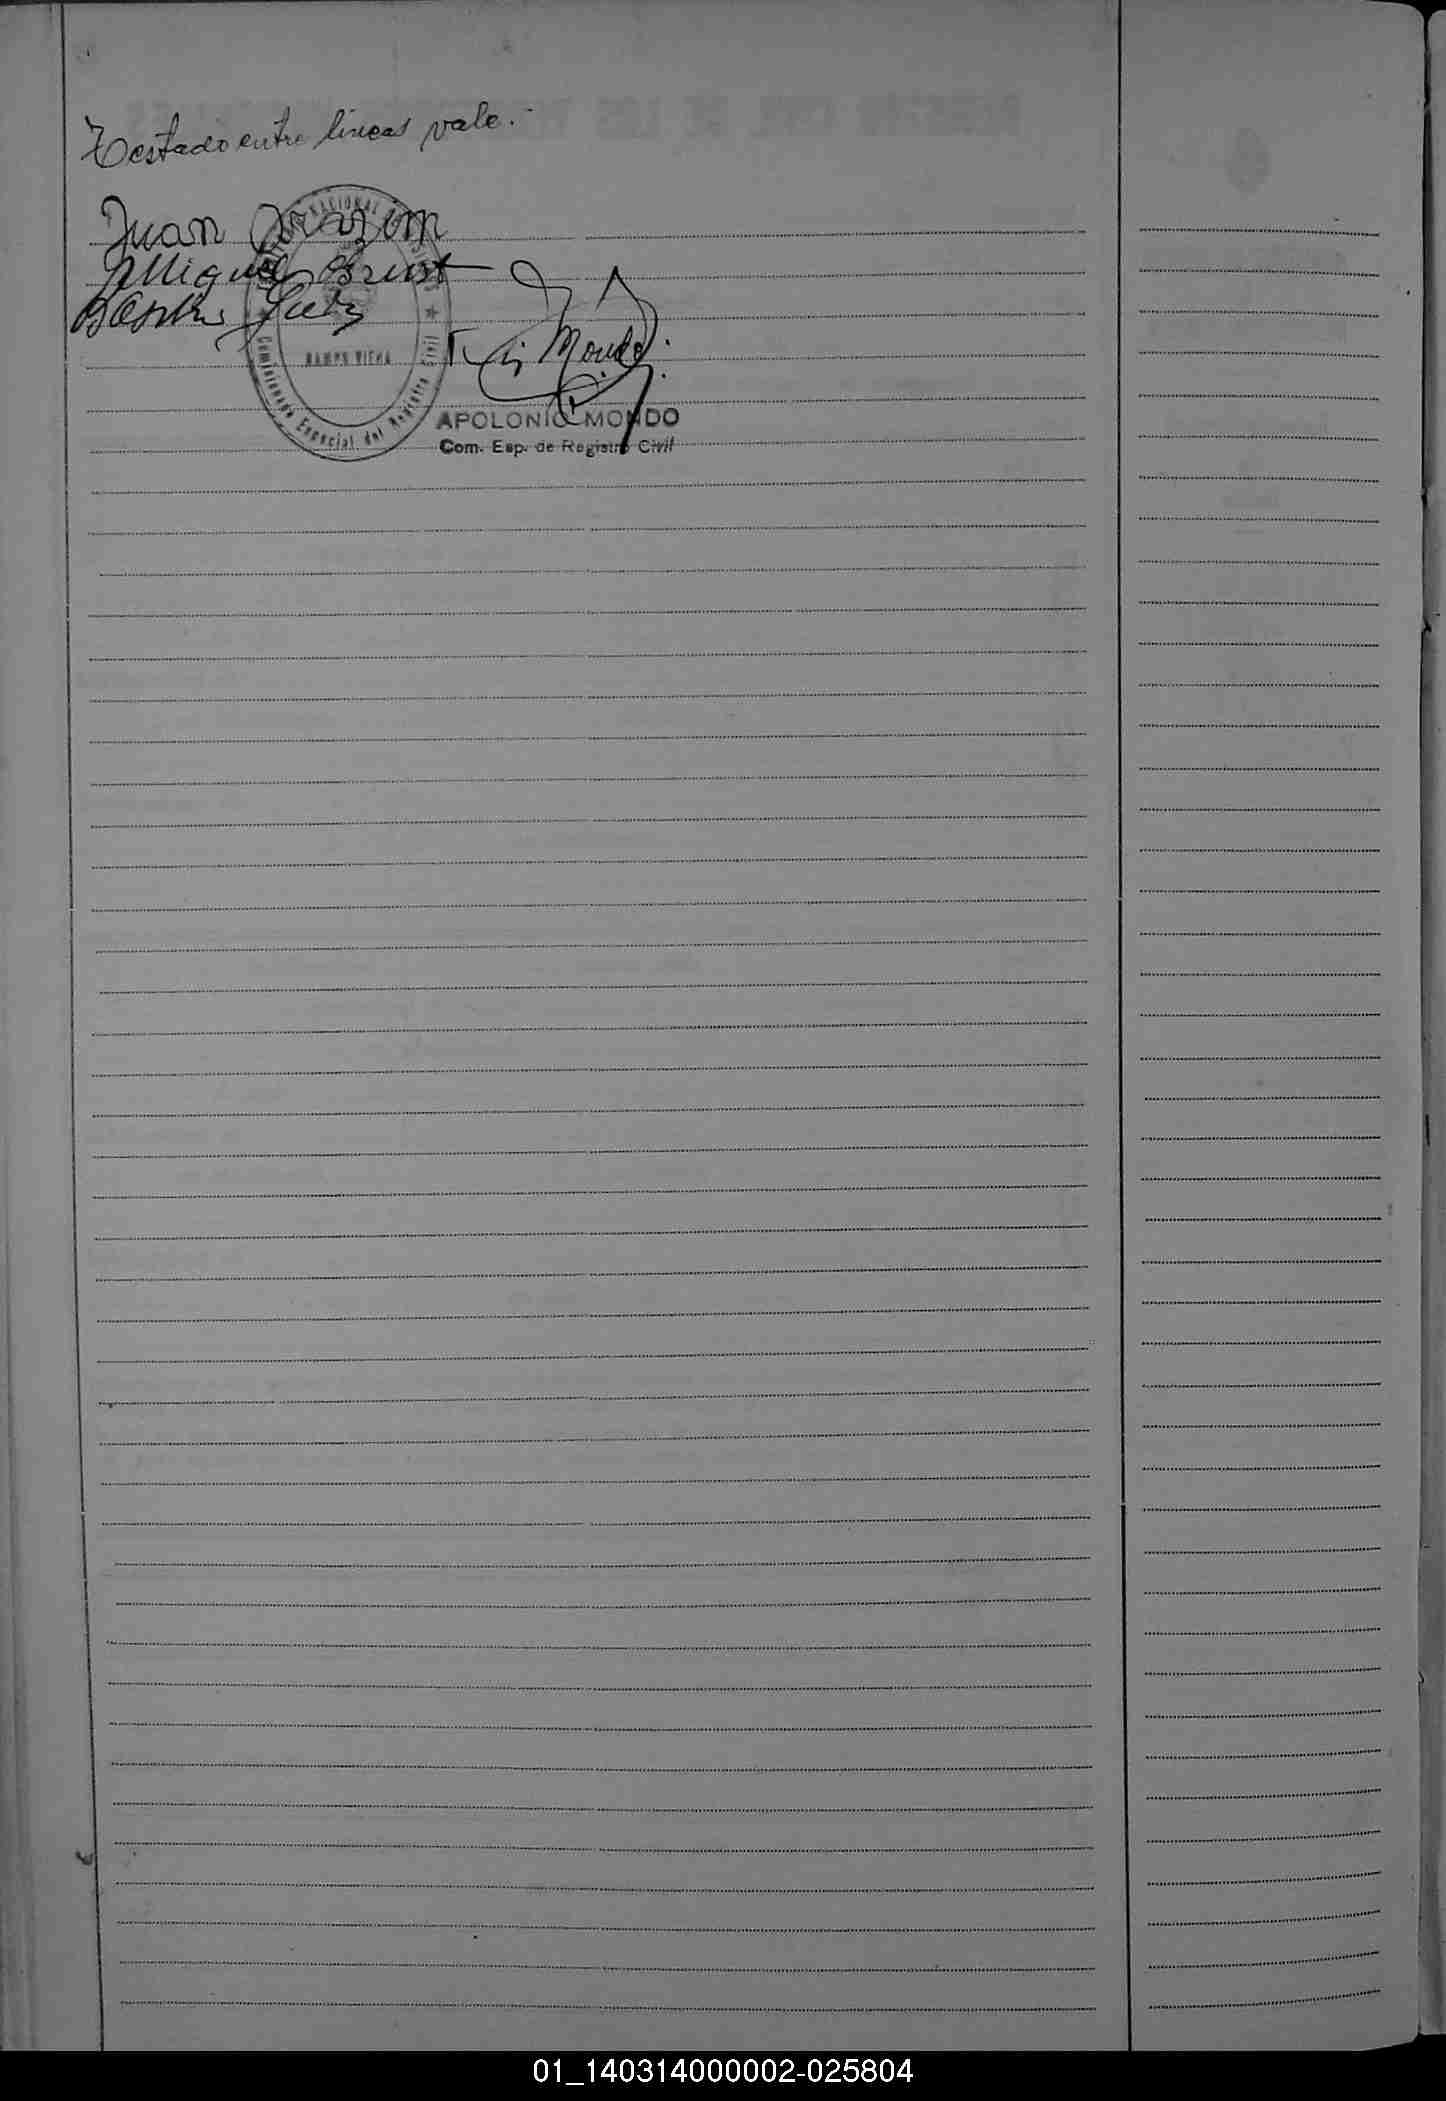 Testado entre lineas vale.-
Juan
Miguel Brust
NACIONAL
CAMPO VIERA
Comisionado Especial del Registro Civil
Mondo
APOLONIO MONDO
Com. Esp. de Registro Civil
01_140314000002-025804